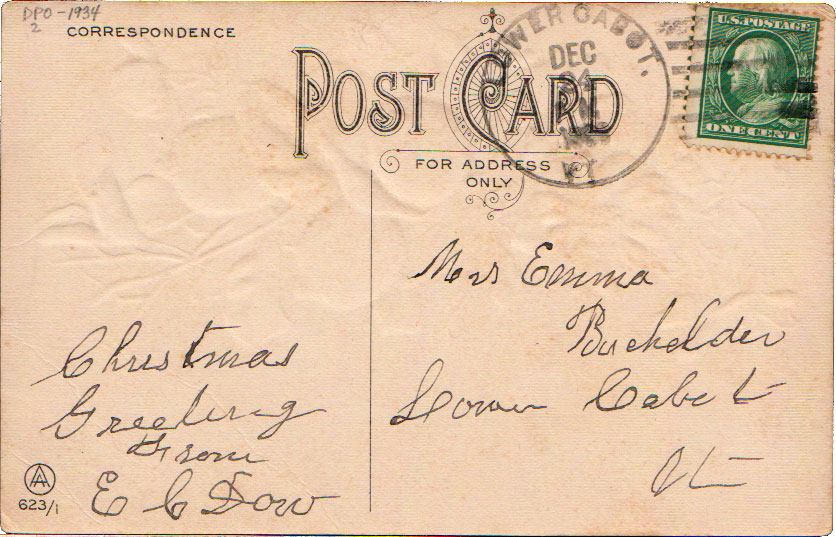 DPO-1934
2
CORRESPONDENCE
POST CARD
FOR ADDRESS
ONLY
WER CABOT.
DEC
24
VT
U.S. POSTAGE
ONE CENT
Mrs Emma
Buchelder
Lower Cabot
Vt
Christmas
Greeting
From
E C Dow
AA
623/1